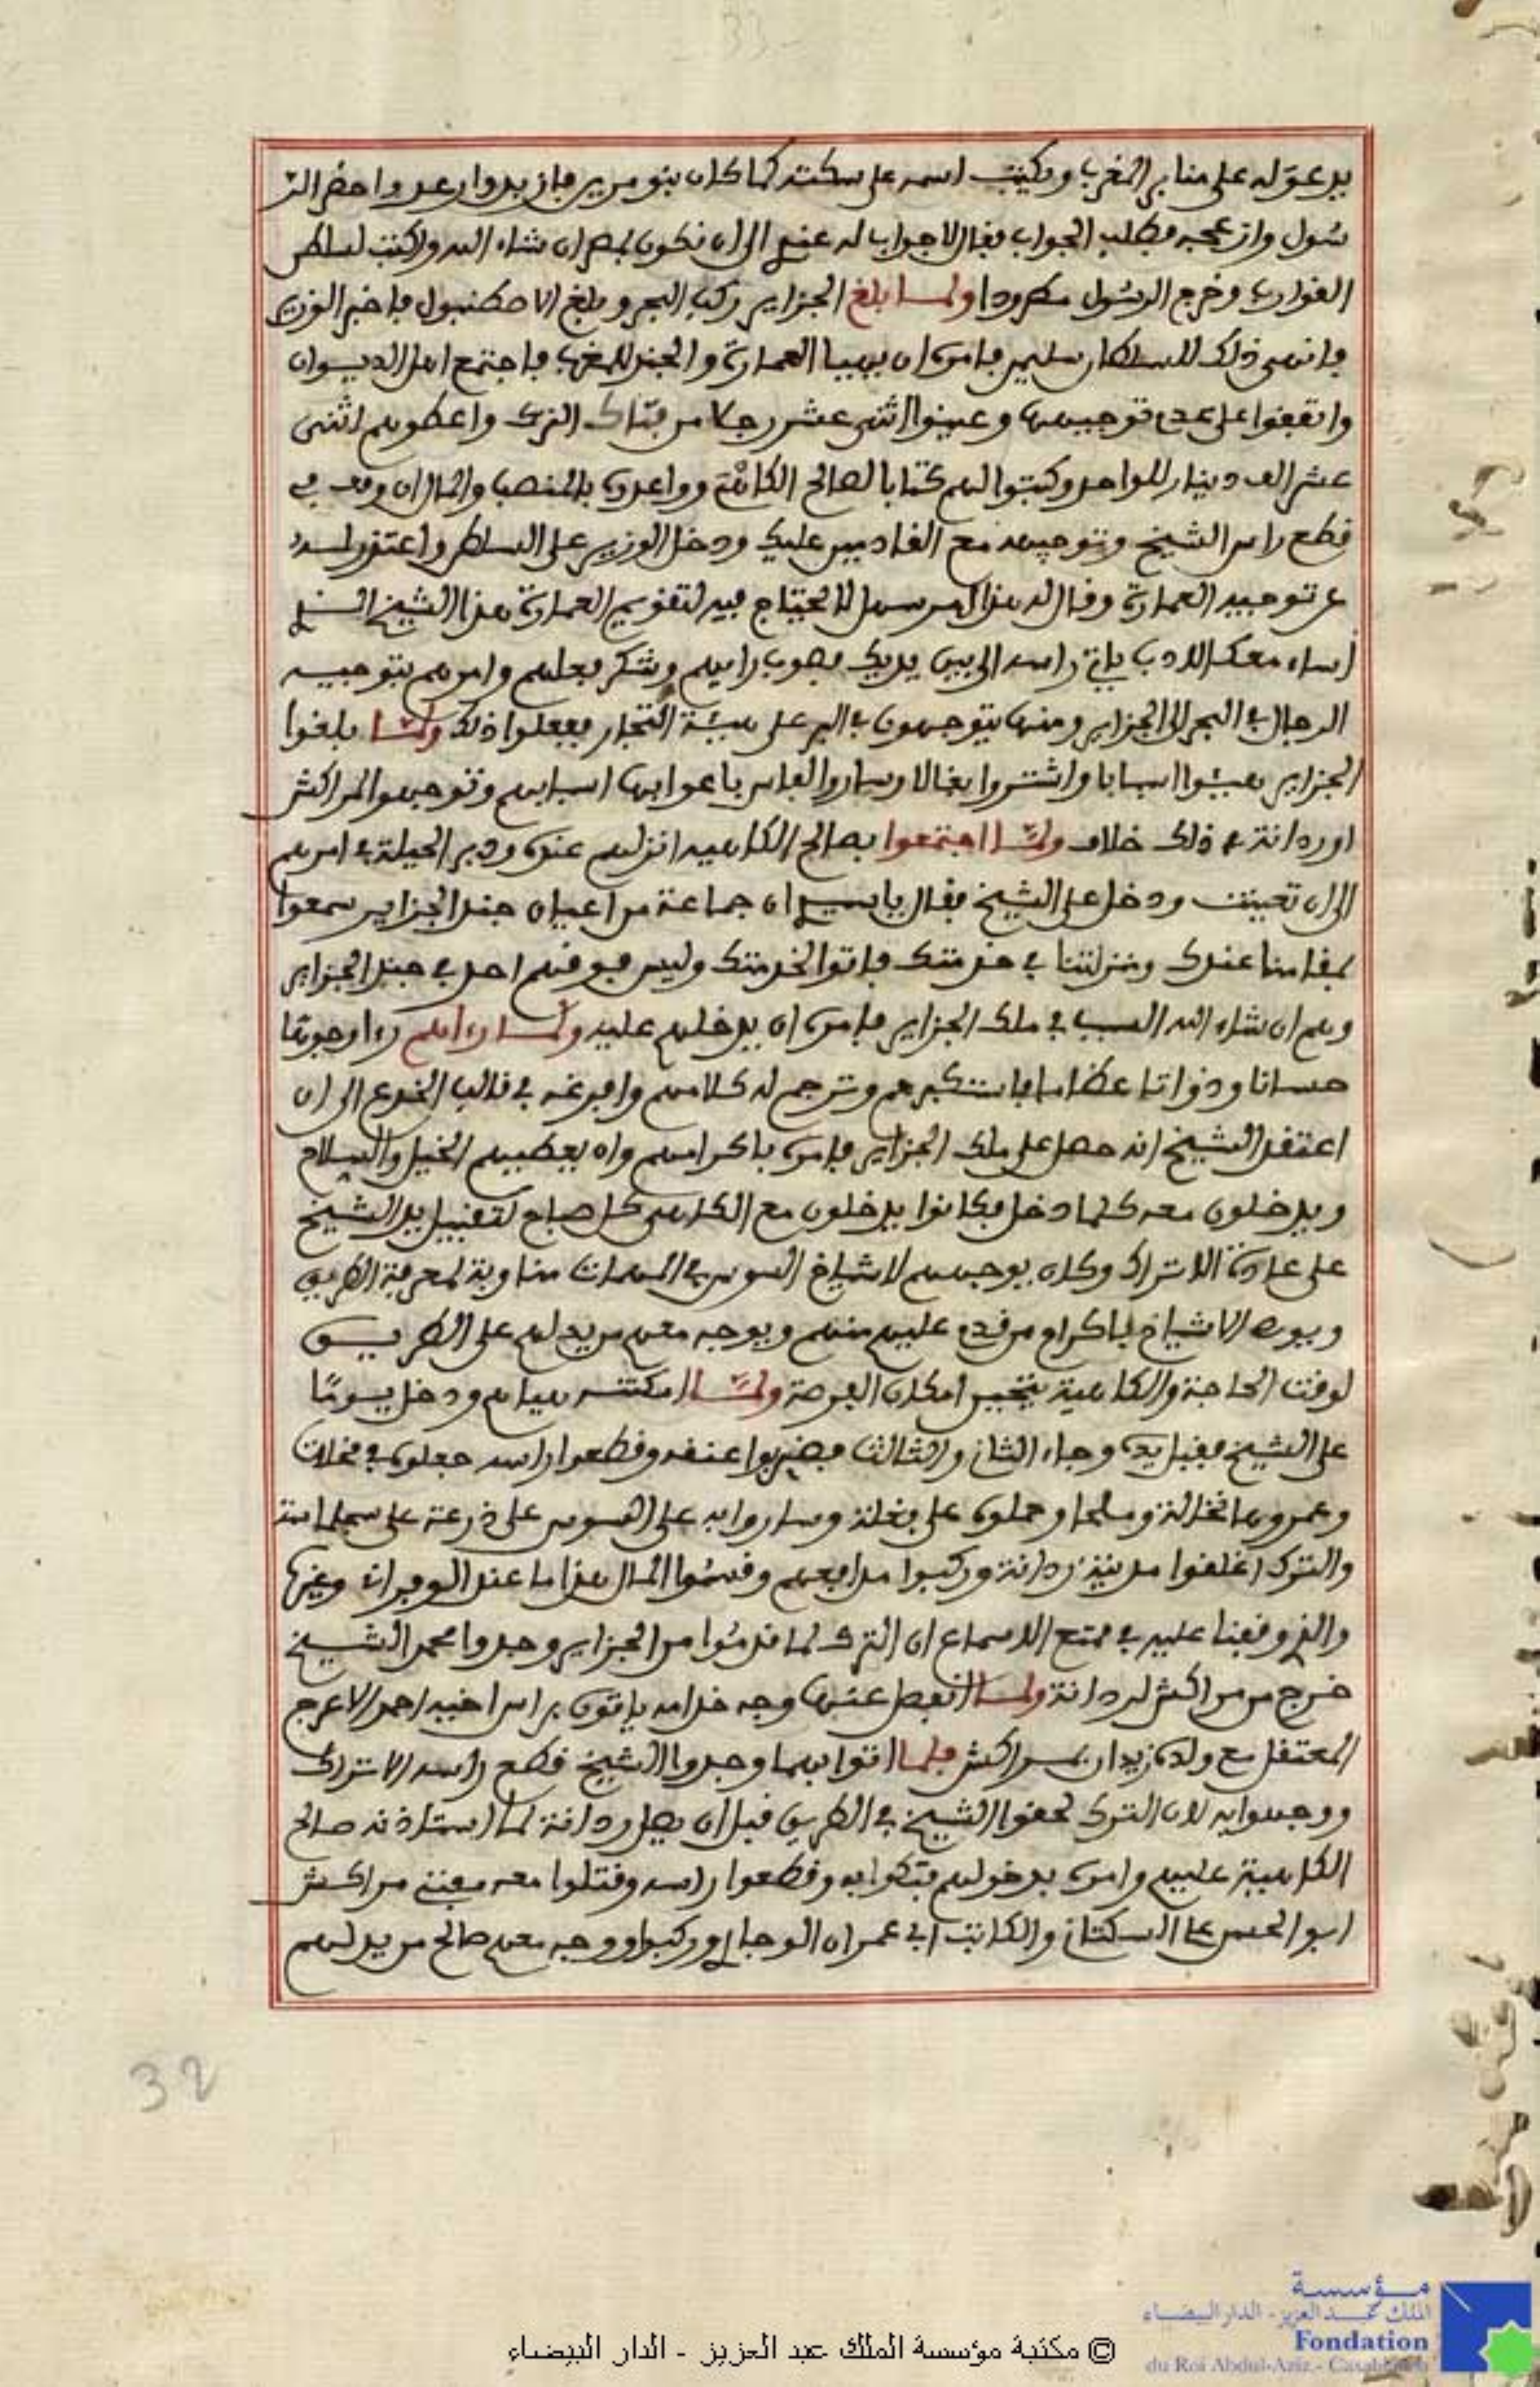 يدعو له على منابر المغرب ويكتب اسمه على سكته كما كان بنو مرين فازبد وارعد واحضر الر
سول وازعجه فطلب الجواب فقال لا جواب له عندي الى ان نكون بمصر ان شاء الله ونكتب لسلطان
القوارب وخرج الرسول مطرودا ولما بلغ الجزاير ركب البحر وبلغ الاصطنبول فاخبر الوزير
فانهى ذلك للسلطان سليمن فامره ان يهيا العمارة والجند للمغرب فاجتمع اهل الديوان
واتفقوا على عدم توجيهها وعينوا اثنى عشر رجلا من فتاك الترك واعطوهم اثنى
عشر الف دينار للواحد وكتبوا لهم كتابا لصالح الكاهية وواعدوه بالمنصب والمال ان وفى في
قطع راس الشيخ وتوجيهه مع القادمين عليك ودخل الوزير على السلطان واعتذر له
عن توجيه العمارة وقال له هذا امر سهل لا يحتاج فيه لتقويم العمارة هذا الشيخ الذي
اساء معك الادب ياتي راسه الى بين يديك فصوب رايهم وشكر فعلهم وامرهم بتوجيه
الرجال في البحر الى الجزاير ومنها يتوجهون في البر على هيئة التجار ففعلوا ذلك ولما بلغوا
الجزاير هيئوا اسبابا واشتروا بغالا وساروا لفاس باعوا بها اسبابهم وتوجهوا لمراكش
اوردانة في ذلك خلاف ولما اجتمعوا بصالح الكاهية انزلهم عنده ودبر الحيلة في امرهم
الى ان تعينت ودخل على الشيخ فقال يا سيدي ان جماعة من اعيان جند الجزاير سمعوا
بمقامنا عندك ومنزلتنا في خدمتك فاتوا لخدمتك وليس فوقهم احد في جند الجزاير
وهم ان شاء الله السبب في ملك الجزاير فامره ان يدخلهم عليه ولما رءاهم رءا وجوها
حسانا وذواتا عظاما فاستكبرهم وترجم له كلامهم وافرغه في قالب الخدع الى ان
اعتقد الشيخ انه حصل على ملك الجزاير فامره باكرامهم وان يعطيهم الخيل والسلاح
ويدخلون معه كلما دخل فكانوا يدخلون مع الكاهية كل صباح لتقبيل يد الشيخ
على عادة الاتراك وكان يوجههم لاشياخ السوس في المهمات مناوبة لمعرفة الطريق
ويوصى الاشياخ باكرام من قدم عليهم منهم ويوجه معهم من يدلهم على الطريق
لوقت الحاجة والكاهية يتحين امكان الفرصة ولما امكنته هيا لهم ودخل يوما
على الشيخ فقبل يده وجاء الثاني والثالث فضربوا عنقه وقطعوا راسه جعلوه في مخلات
وعمروها نخالة وملحا وحملوه على بغلة وساروا به على السوس على درعة على سجلماسة
والترك اغلقوا مدينة ردانة وركبوا مدافعهم وقسموا المال هذا ما عند الوفراني وغيره
والذي وقفنا عليه في ممتع الاسماع ان الترك لما قدموا من الجزاير وجدوا محمد الشيخ
خرج من مراكش لردانة ولما انفصل عنها وجه خدامه ياتون براس اخيه احمد الاعرج
المعتقل مع ولده زيدان بمراكش فلما اتوا بهما وجدوا الشيخ قطع راسه الاتراك
ووجهوا به لان الترك لحقوا الشيخ في الطريق قبل ان يصل ردانة لما استاذنه صالح
الكاهية عليهم وامره بدخولهم فتكوا به وقطعوا راسه وقتلوا معه مفتي مراكش
ابو الحسن على السكتاني والكاتب ابي عمران الوجاني وركبوا ووجه معهم صالح من يدلهم
32
مؤسسة
الملك عبد العزيز - الدار البيضاء
Fondation
du Roi Abdul-Aziz - Casablanca
© مكتبة مؤسسة الملك عبد العزيز - الدار البيضاء